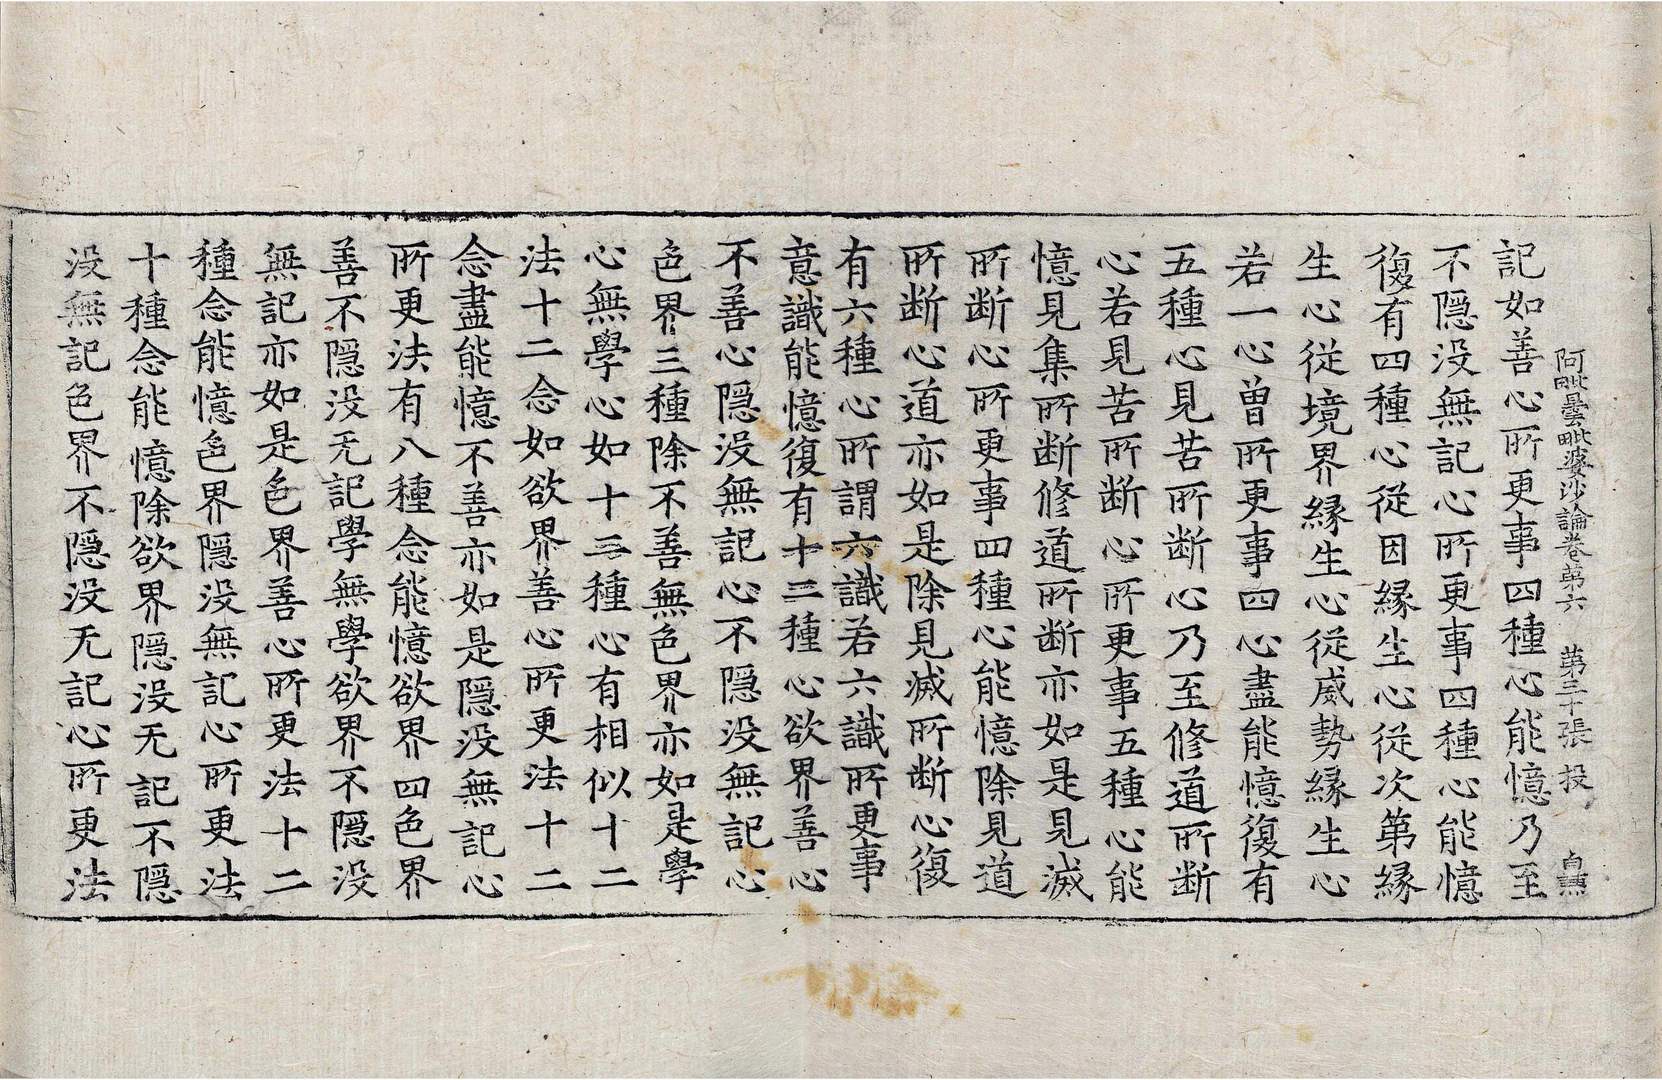 阿毗曇毗婆沙論卷第六　第三十張　投
記如善心所更事四種心能憶乃至
不隠没無記心所更事四種心能憶
復有四種心從因緣生心從次第緣
生心從境界緣生心從威勢緣生心
若一心曾所更事四心盡能憶復有
五種心見苦所断心乃至修道所断
心若見苦所断心所更事五種心能
憶見集所断修道所断亦如是見滅
所断心所更事四種心能憶除見道
所断心道亦如是除見滅所断心復
有六種心所謂六識若六識所更事
意識能憶復有十三種心欲界善心
不善心隠没無記心不隠没無記心
色界三種除不善無色界亦如是學
心無學心如十三種心有相似十二
法十二念如欲界善心所更法十二
念盡能憶不善亦如是隠没無記心
所更法有八種念能憶欲界四色界
善不隠没无記學無學欲界不隠没
無記亦如是色界善心所更法十二
種念能憶色界隠没無記心所更法
十種念能憶除欲界隠没无記不隠
没無記色界不隠没无記心所更法